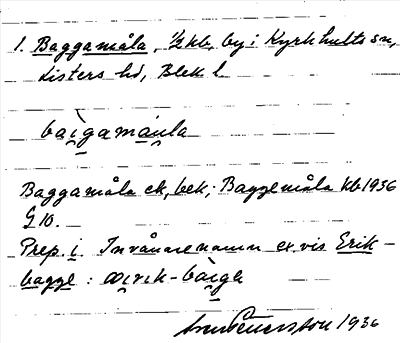 1. Baggamåla, 1/2 kb, by i Kyrkhults sn,
Listers hd, Blek l
bai̯gamåu̯la
Baggamåla ek, bek; Baggemåla kb 1936
G 10.
Prep. i. Invånarenamn ex.vis Erik-
bagge :
1936